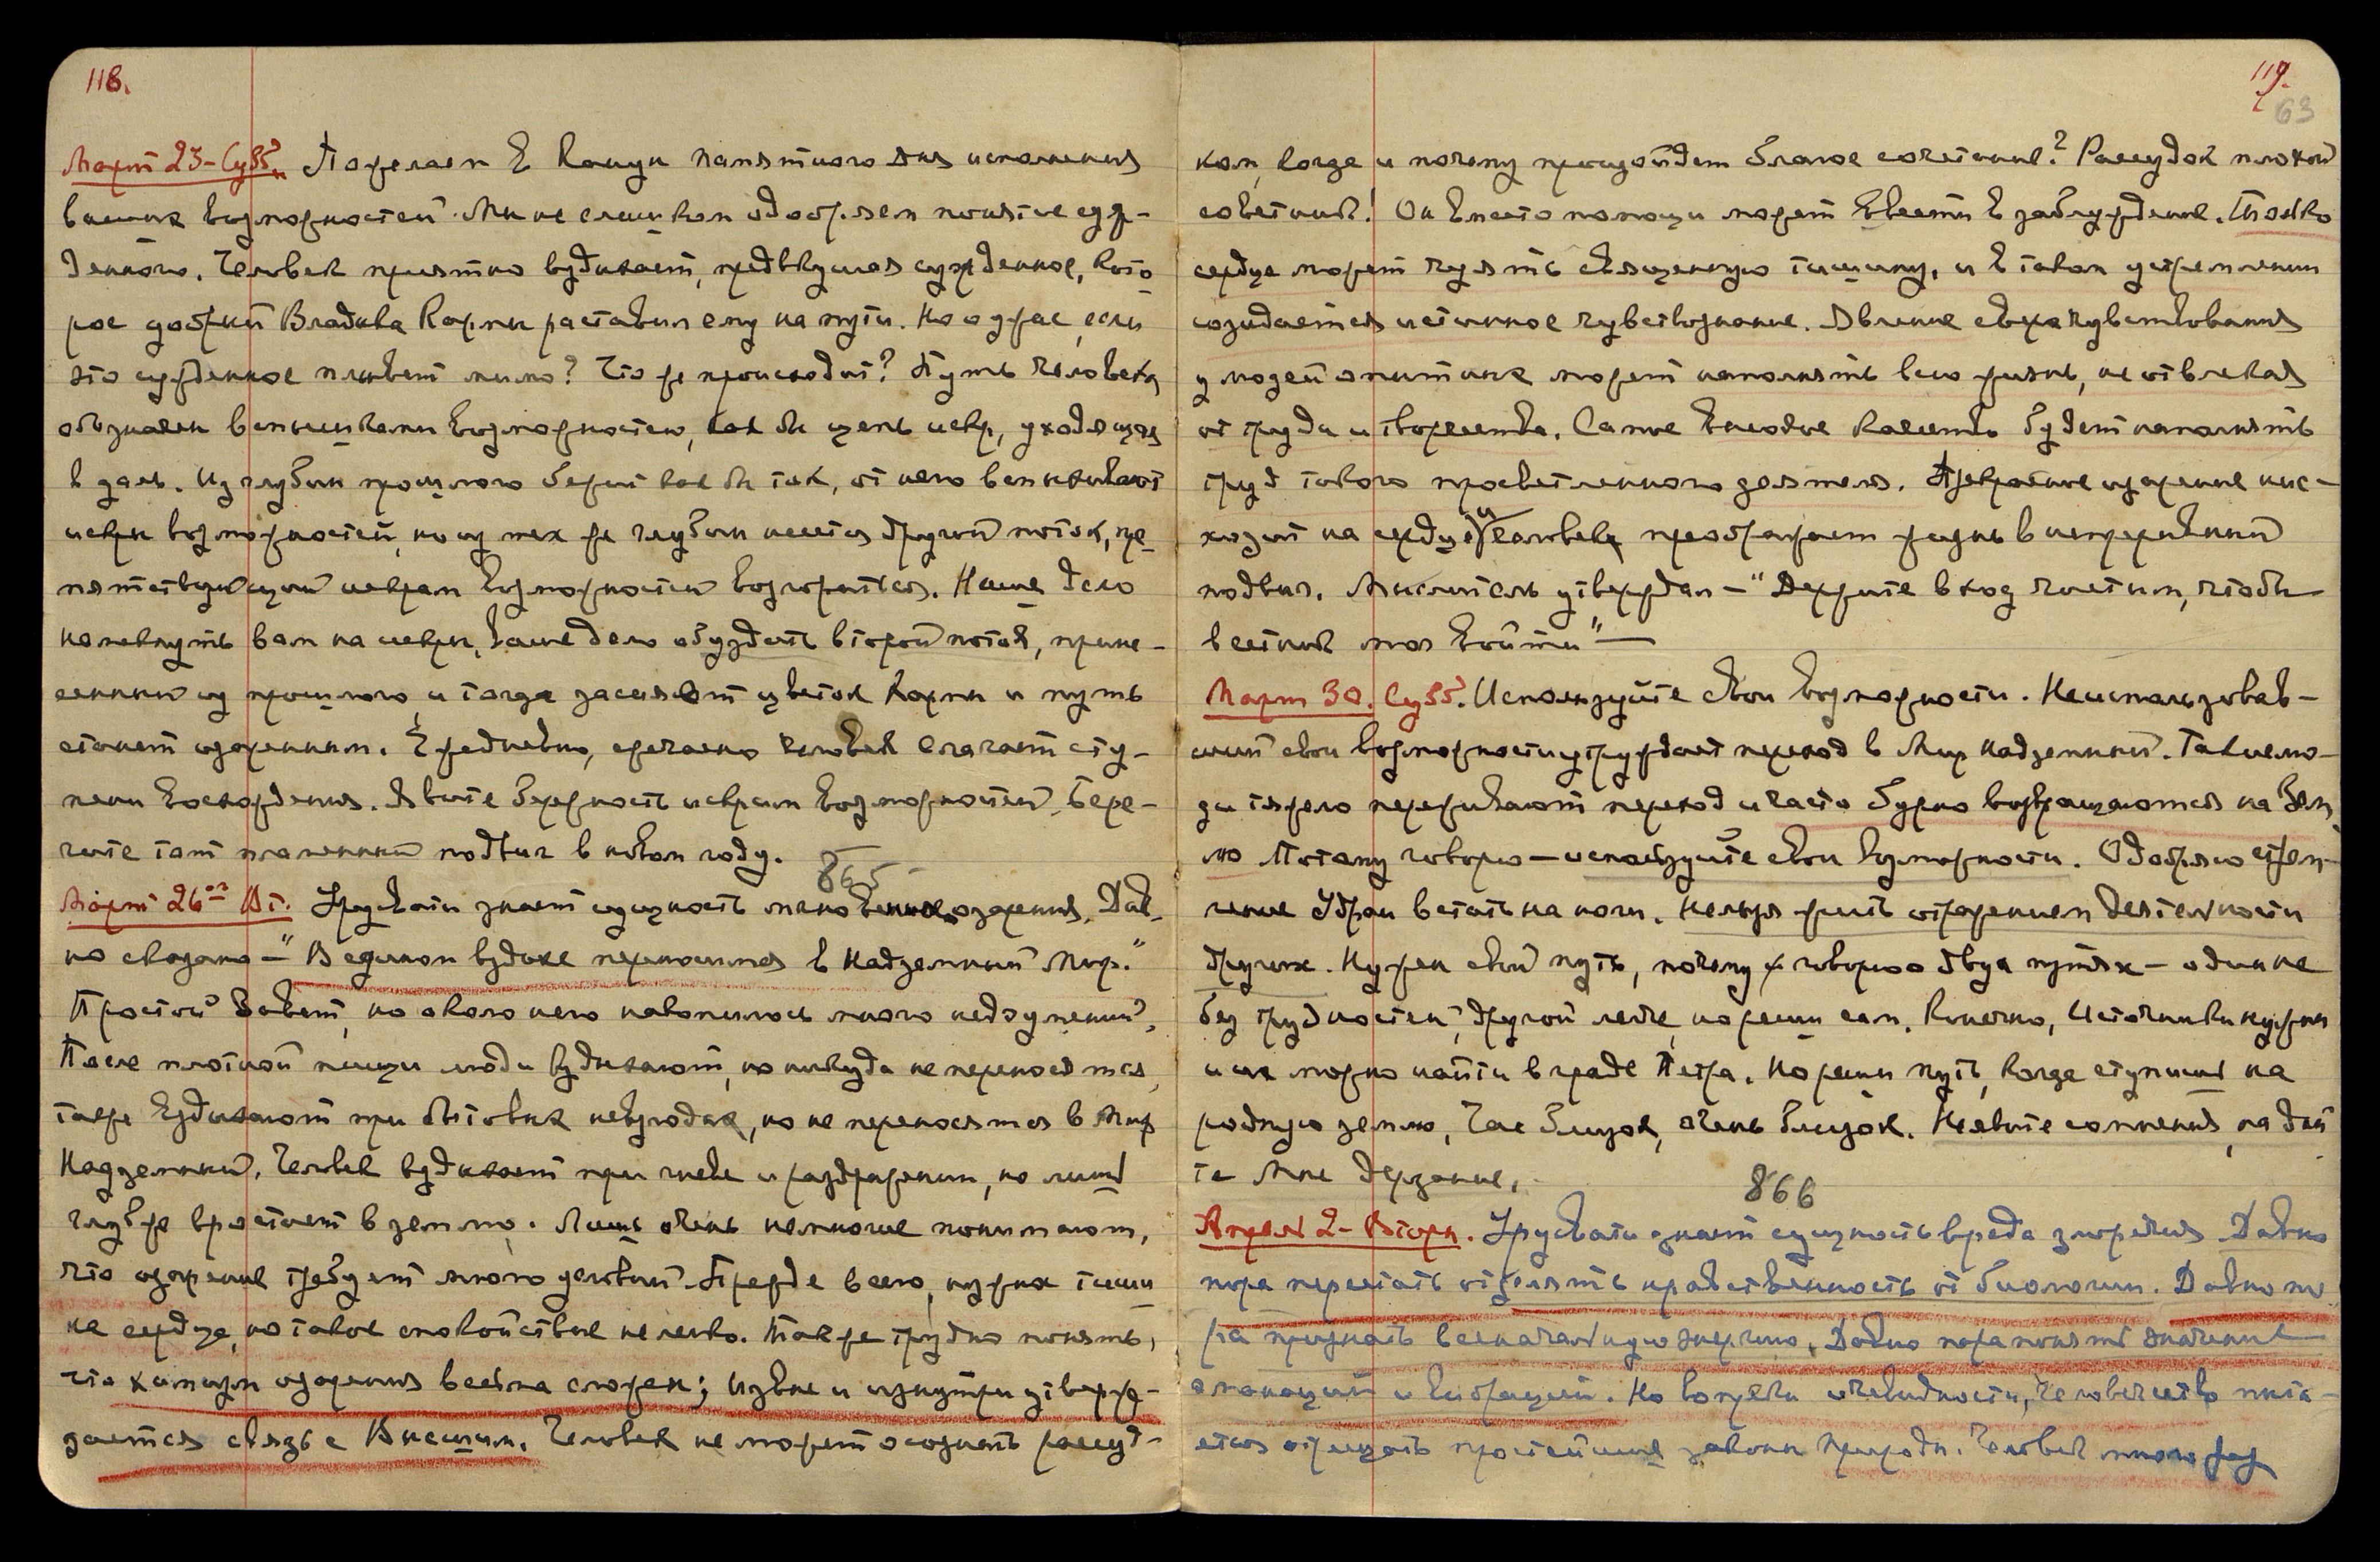 118.
Март 23 - Субб. Пожелаем в Канун памятного дня исполнения
ваших возможностей. Мы не слишком одобряем понятие суж-
денного. Человек приятно вздыхает, предвкушая сужденное, кото
рое добрый Владыка Кармы раставил ему на пути. Но о ужас, если
это сужденное плывет мимо? Что же происходит? Путь человека
обозначен вспышками возможностей, как бы цепь искр, уходящая
в даль. Из глубин прошлого бежит как бы ток, от него вспыхивают
искры возможностей, но из тех же глубин несется другой поток, пре
пятствующий искрам возможностей возгораться. Наше дело
намекнуть вам на искры, ваше дело обуздать второй поток, прине-
сенный из прошлого и тогда засияет цветок Кармы и путь
станет озаренным. Ежедневно, ежечасно человек слагает сту-
пени восхождения. Явите бережность искрам возможностей. Бере-
гите тот пламенный подвиг в новом году.
865
Март 26ое Вт. Урусвати знает сущность мгновенного озарения. Дав-
но сказано — "В едином вздохе переносимся в Надземный Мир."
Простой Завет, но около него накопилось много недоумений.
После плотной пищи люди вздыхают, но никуда не переносятся,
также вздыхают при бытовых невзгодах, но не переносятся в Мир
Надземный. Человек вздыхает при гневе и раздражении, но лишь
глубже врастает в землю. Лишь очень немногие понимают,
что озарение требует много условий. Прежде всего, нужна тиши
на сердца, но такое спокойствие нелегко. Также трудно понять,
что химизм озарения весьма сложен; извне и изнутри утверж-
дается связь с Высшим. Человек не может осознать рассуд-
119.
63
ком, когда и почему произойдет благое сочетание? Рассудок плохой
советник! Он вместо помощи может ввести в заблуждение. Только
сердце может чуять священную тишину, и в таком устремлении
созидается истинное чувствознание. Явление сверхчувствования
у людей опытных может наполнять всю жизнь, не отвлекая
от труда и творчества. Самое высокое качество будет наполнять
труд такого просветленного деятеля. Прекрасное озарение нис-
ходит на сердце человека и преображает жизнь в непрерывный
подвиг. Мыслитель утверждал — "Держите вход чистым, чтобы
вестник мог войти" —
Март 30. Субб. Используйте свои возможности. Неиспользовав-
ший свои возможности утруждает переход в Мир Надземный. Такие лю-
ди тяжело переживают переход и часто бурно возвращаются на Зем
лю Потому говорю — используйте свои возможности. Одобряю стрем-
ление Удраи встать на ноги. Нельзя жить отражением деятельности
других. Нужен свой путь, почему и говорю о двух путях — один не
без трудностей, другой легче, но реши сам. Конечно, Источники нужны
и их можно найти в граде Петра. Но реши путь, когда ступишь на
родную землю, Час близок, очень близок. Не явите сомнения, но дай
те Мне дерзание.
866
Апрель 2 - Вторн. Урусвати знает сущность вреда злоречия Давно
пора перестать отделять нравственность от биологии. Давно по
ра признать всеначальную энергию. Давно пора понять значение
эманаций и вибраций. Но вопреки очевидности, человечество пыта-
ется отрицать простейшие законы природы. Человек много раз